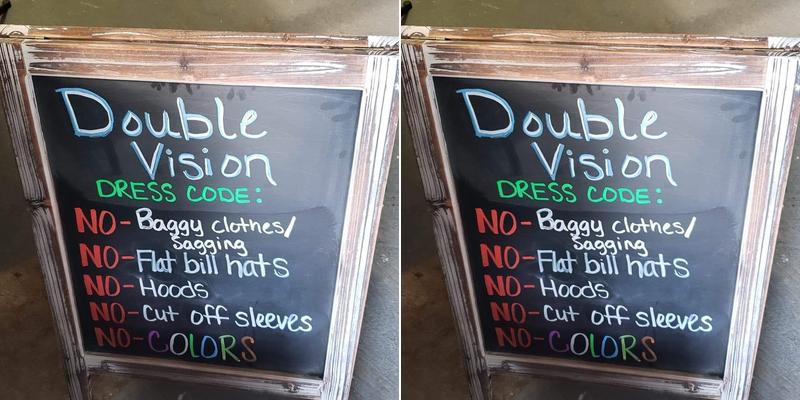 Double
Vision
DRESS CODE:
NO-Baggy clothes/
Sagging
NO-Flat bill hats
NO-Hoods
NO-Cut off sleeves
NO-COLORS
Double
Vision
DRESS CODE:
NO-Baggy clothes/
Sagging
NO-Flat bill hats
NO-Hoods
NO-Cut off sleeves
NO-COLORS